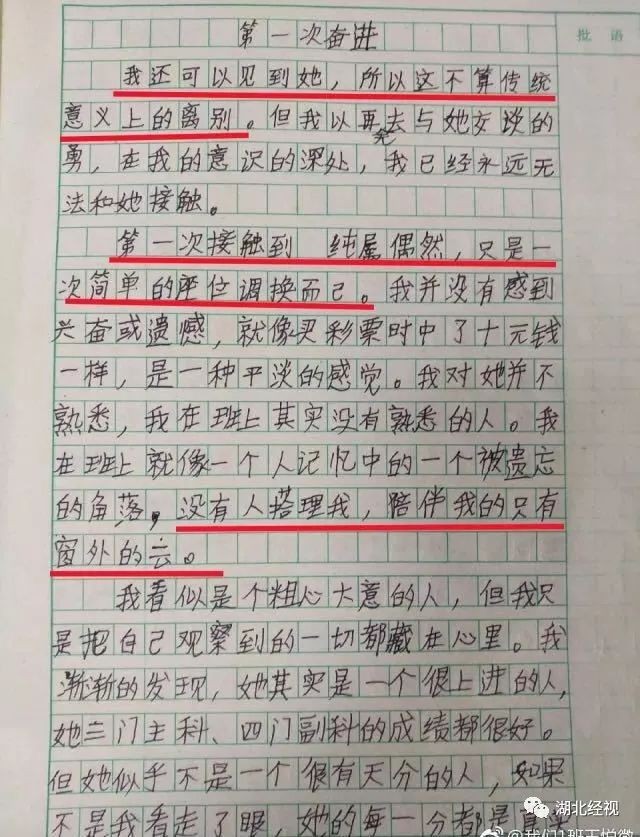 批语
第一次奋进
我还可以见到她，所以这不算传统
意义上的离别。但我以再去与她交谈的
勇，在我的意识的深处，我已经永远无
法和她接触。
第一次接触到 纯属偶然，只是一
次简单的座位调换而已。我并没有感到
兴奋或遗憾，就像买彩票时中了十元钱
一样，是一种平淡的感觉。我对她并不
熟悉，我在班上其实没有熟悉的人。我
在班上就像一个人记忆中的一个被遗忘
的角落，没有人搭理我，陪伴我的只有
窗外的云。
我看似是个粗心大意的人，但我只
是把自己观察到的一切都藏在心里。我
渐渐的发现，她其实是一个很上进的人，
她三门主科、四门副科的成绩都很好。
但她似乎不是一个很有天分的人，如果
不是我看走了眼，她的每一分都是
湖北经视